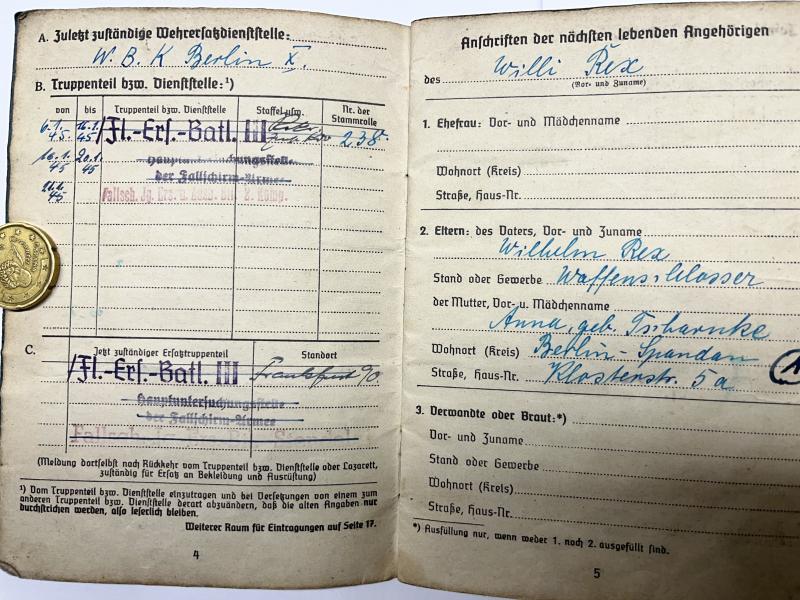 A. Zuletzt zuständige Wehrersatzdienststelle:
W. B. K Berlin X.
B. Truppenteil bzw. Dienststelle:¹)
von bis Truppenteil bzw. Dienststelle Staffel usw. Nr. der Stammrolle
6.1. 45 16.1. 45 Fl.-Ers.-Batl. III 238
16.1. 45 20.1. 45 Hauptuntersuchungsstelle
der Fallschirm-Armee
45 Fallsch. Jg. Ers. u.
C. Jetzt zuständiger Ersatztruppenteil Standort
Fl.-Ers.-Batl. III Frankfurt /O
Hauptuntersuchungsstelle
der Fallschirm-Armee
(Meldung dortselbst nach Rückkehr vom Truppenteil bzw. Dienststelle oder Lazarett,
zuständig für Ersatz an Bekleidung und Ausrüstung)
¹) Vom Truppenteil bzw. Dienststelle einzutragen und bei Versetzungen von einem zum
anderen Truppenteil bzw. Dienststelle derart abzuändern, daß die alten Angaben nur
durchstrichen werden, also leserlich bleiben.
Weiterer Raum für Eintragungen auf Seite 17.
4
Anschriften der nächsten lebenden Angehörigen
des Willi Rex
(Vor- und Zuname)
1. Ehefrau: Vor- und Mädchenname
Wohnort (Kreis)
Straße, Haus-Nr.
2. Eltern: des Vaters, Vor- und Zuname
Wilhelm Rex
Stand oder Gewerbe Waffenschlosser
der Mutter, Vor- u. Mädchenname
Anna, geb. Tscharnke
Wohnort (Kreis) Berlin-Spandau
Straße, Haus-Nr. Klosterstr. 5a
3. Verwandte oder Braut:*)
Vor- und Zuname
Stand oder Gewerbe
Wohnort (Kreis)
Straße, Haus-Nr.
*) Ausfüllung nur, wenn weder 1. noch 2. ausgefüllt sind.
5